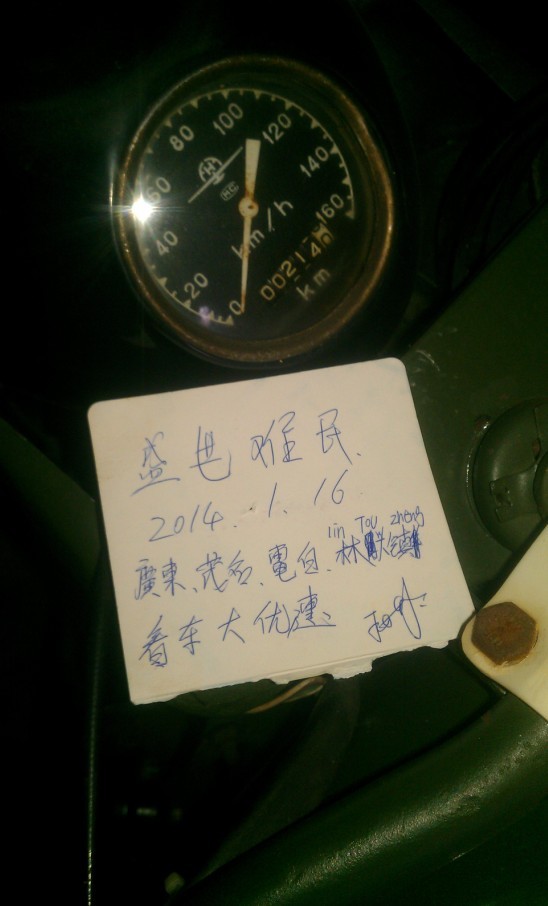 0
20
40
60
80
100
120
140
160
HC
km/h
km
盛世唯民
2014.1.16
lin Tou zheng
廣東、茂名、電白、林
看车大优惠